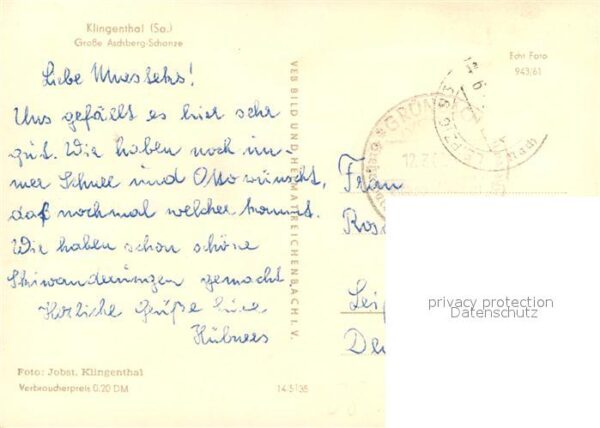 Klingenthal (Sa.)
Große Aschberg-Schanze
Echt Foto
943/61
Liebe
Uns gefällt es hier sehr
gut. Wir haben noch im-
mer Schnee und Otto wünscht,
daß nochmal welcher kommt.
Wir haben schon schöne
Skiwanderungen gemacht
Herzliche Grüße Eure
Hübners
VEB BILD UND HEIMAT REICHENBACH I. V.
Frau
privacy protection
Datenschutz
Foto: Jobst, Klingenthal
Verbraucherpreis 0.20 DM
14/5135